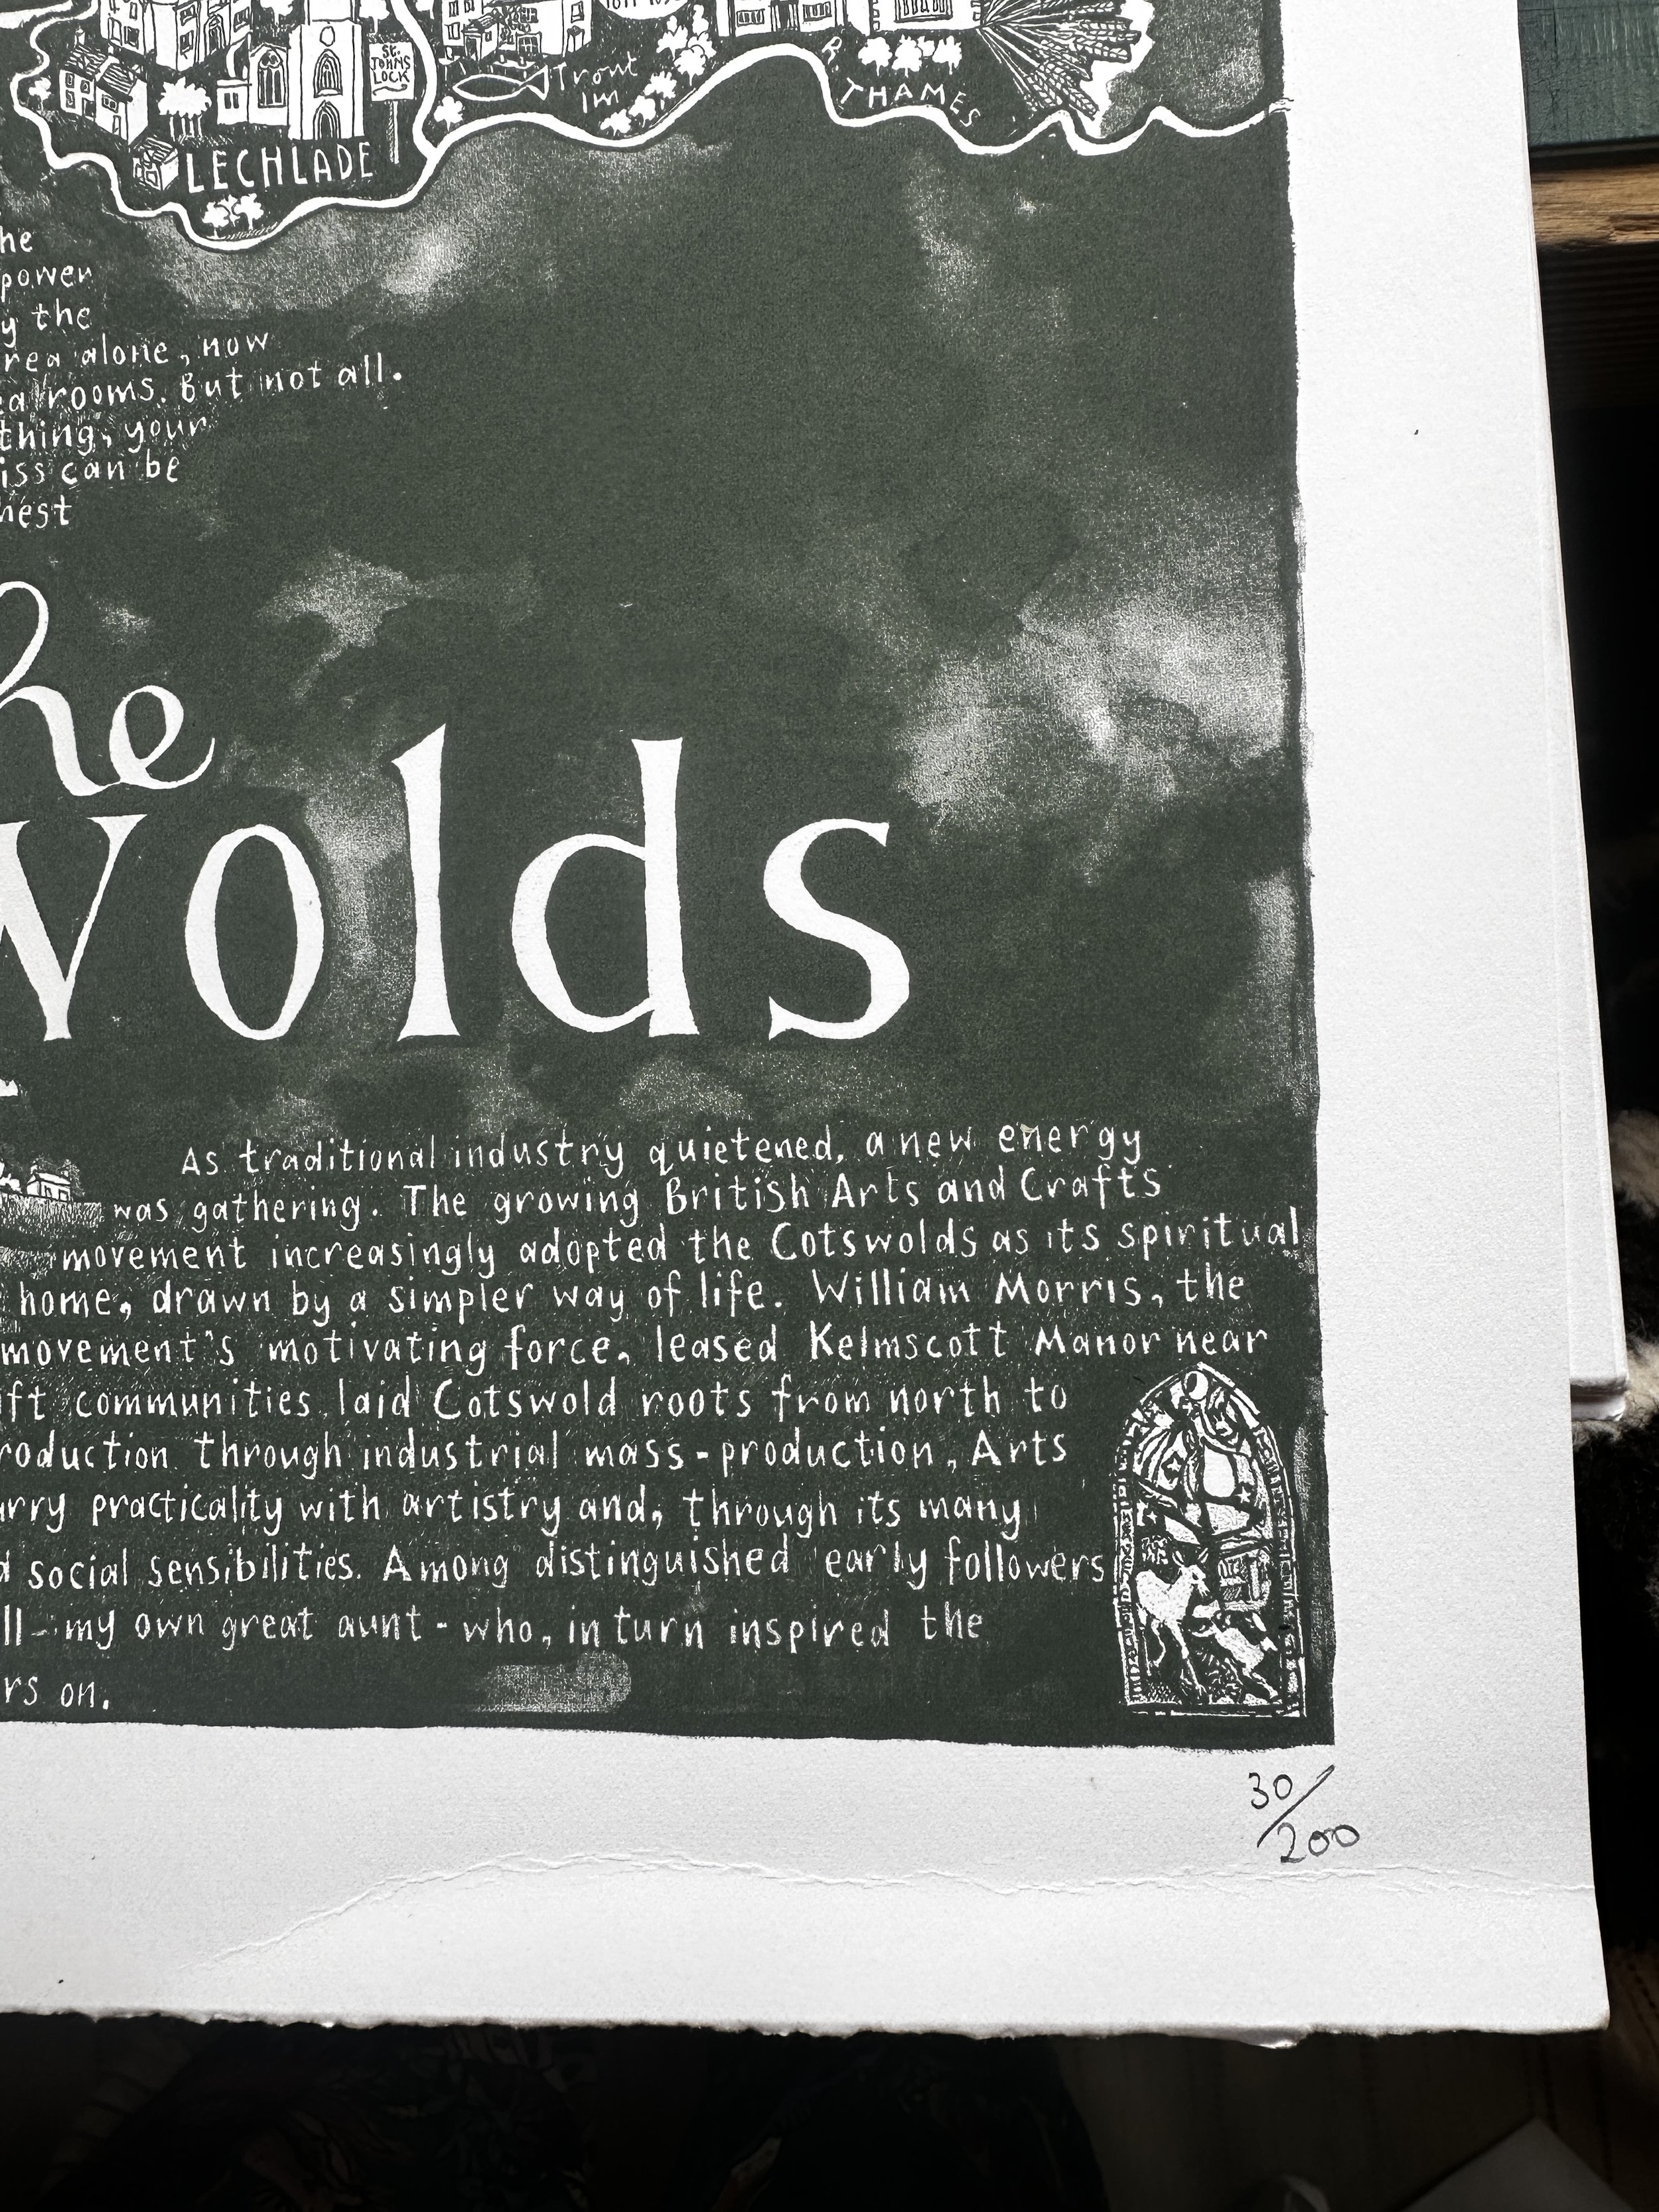 St.
JOHNS
LOCK
Trout
Inn
R. THAMES
LECHLADE
he
power
y the
rea alone, now
ea rooms. But not all.
thing, your
iss can be
hest
he
wolds
As traditional industry quietened, a new energy
was gathering. The growing British Arts and Crafts
movement increasingly adopted the Cotswolds as its spiritual
home, drawn by a simpler way of life. William Morris, the
movement's motivating force, leased Kelmscott Manor near
ft communities laid Cotswold roots from north to
roduction through industrial mass-production, Arts
arry practicality with artistry and, through its many
d social sensibilities. Among distinguished early followers
ll - my own great aunt - who, in turn inspired the
rs on.
30/200